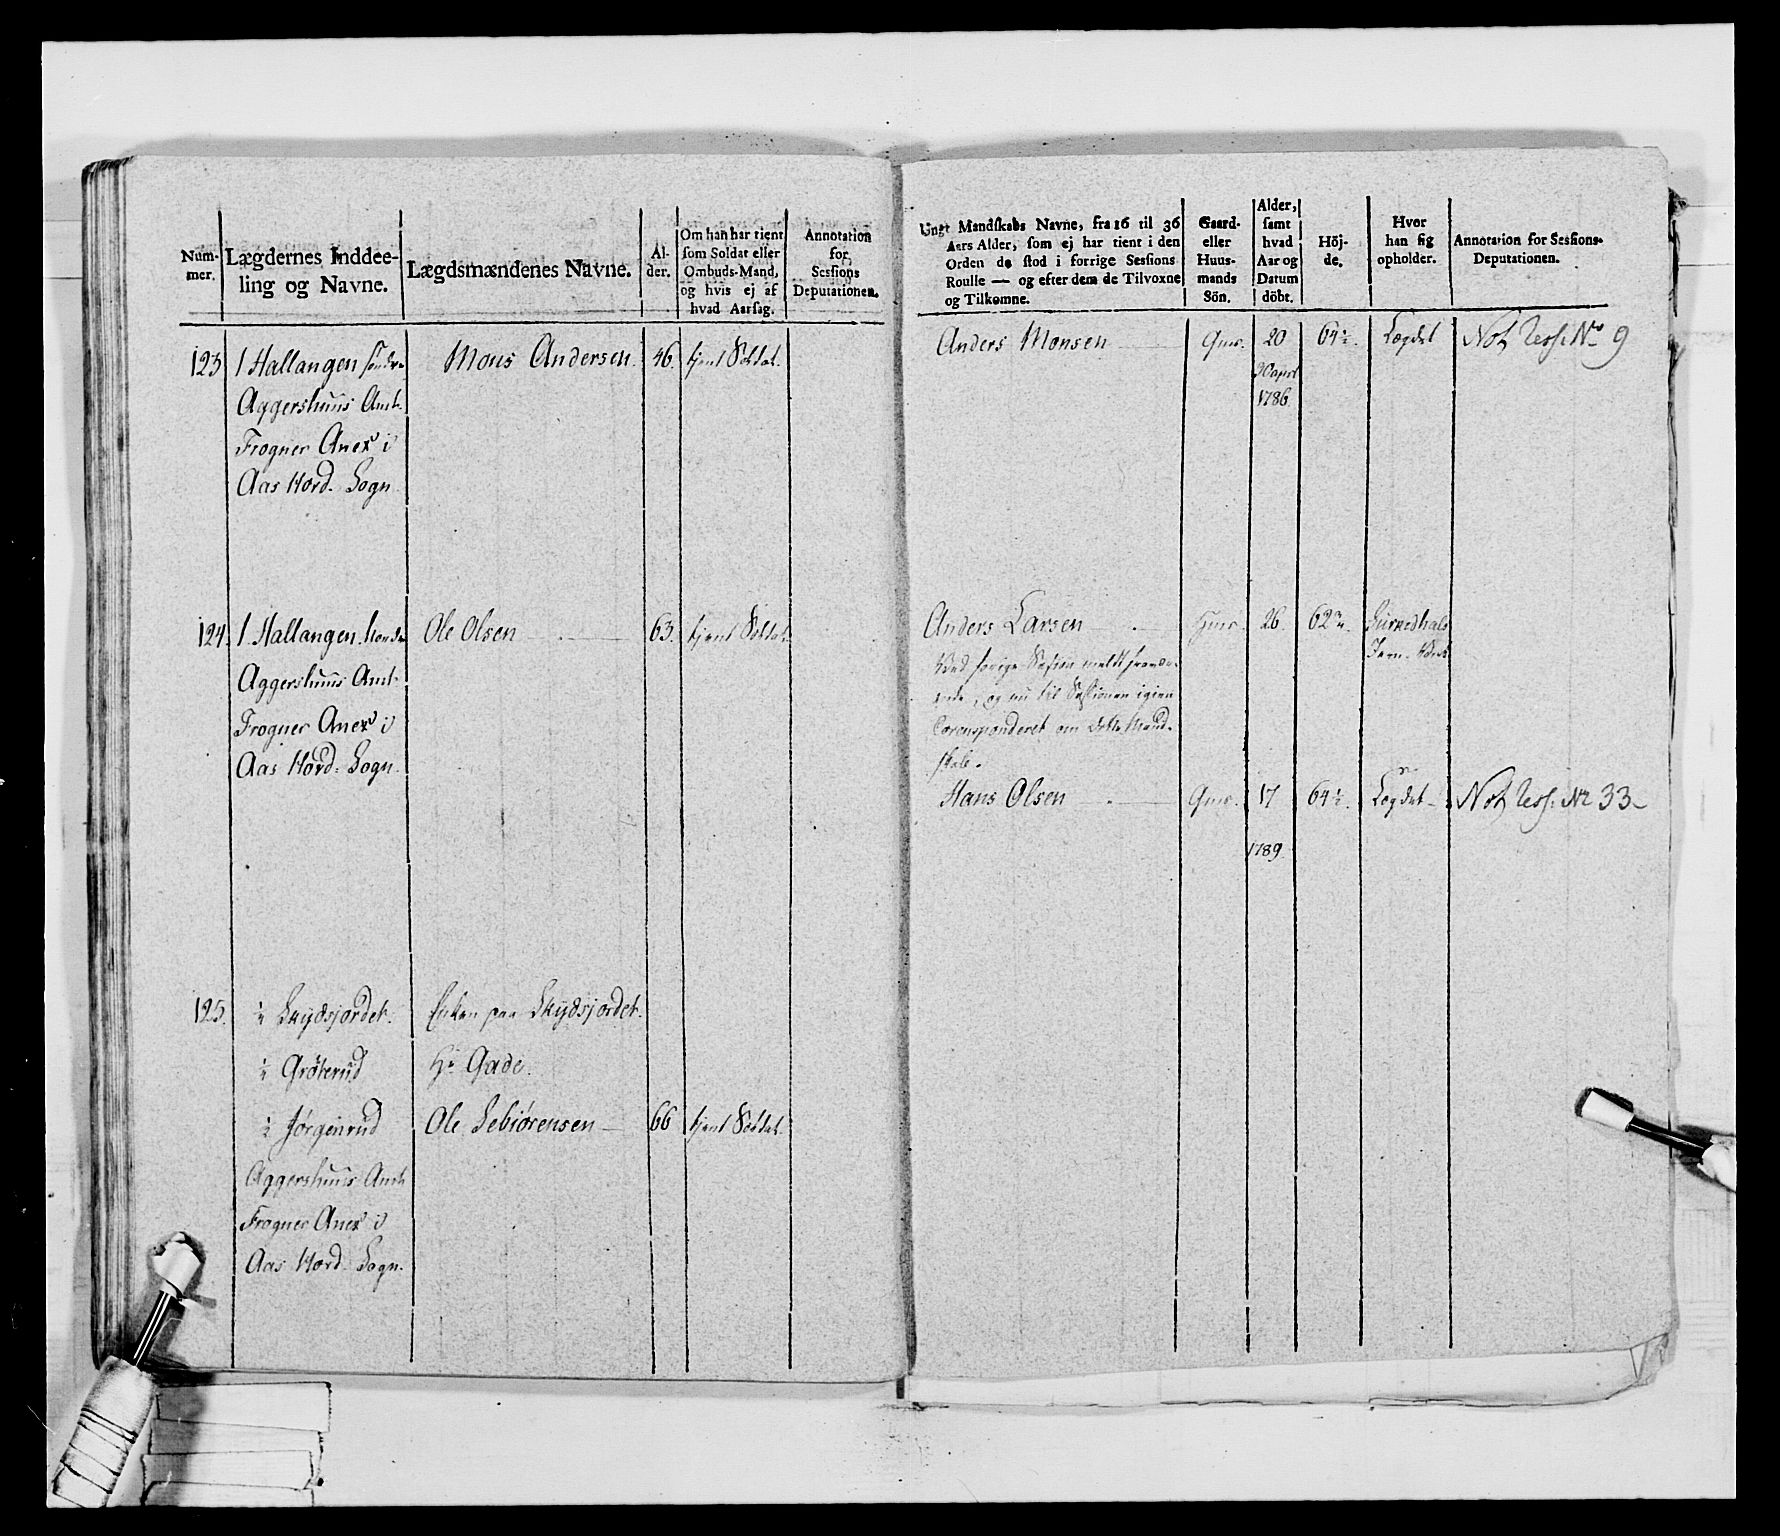 Num-
mer.
Lægdernes Inddee-
ling og Navne.
Lægdsmændenes Navne.
Al-
der.
Om han har tient
som Soldat eller
Ombuds-Mand,
og hvis ej af
hvad Aarsag.
Annotation
for
Sessions
Deputationen.
123 1 Hallangen søndre Mons Andersen. 46. tjent Soldat.
Aggershuus Amt.
Frogner Anex i
Aas Hovd. Sogn
124. 1. Hallangen nordre Ole Olsen 63. tjent Soldat.
Aggershuus Amt
Frogner Anex i
Aas Hovd. Sogn.
125. ½ Skydsjordet. Enken paa Skydsjordet.
½ Grøterud Hr Gade.
½ Jørgenrud Ole Lebiørensen 66 tjent Soldat.
Aggershuus Amt
Frogner Anex i
Aas Hovd. Sogn.
Ungt Mandskabs Navne, fra 16 til 36
Aars Alder, som ej har tient i den
Orden de stod i forrige Sessions
Roulle — og efter dem de Tilvoxne
og Tilkomne.
Gaard-
eller
Huus-
mands
Sön.
Alder,
samt
hvad
Aar og
Datum
döbt.
Höj-
de.
Hvor
han sig
opholder.
Annotation for Sessions-
Deputationen.
Anders Monsen Gms. 20 64½. Lægdet Not Ress: No 9
30 april
1786
Anders Larsen Hms. 26. 62¾.
Ved forige Session meldt fraværende
, og nu til Sessionen igien
Corensponderet om dette Mand-
skab.
Jern-Værk
Hans Olsen Gms. 17 64½. Lægdet Not Ress: No 33
1789